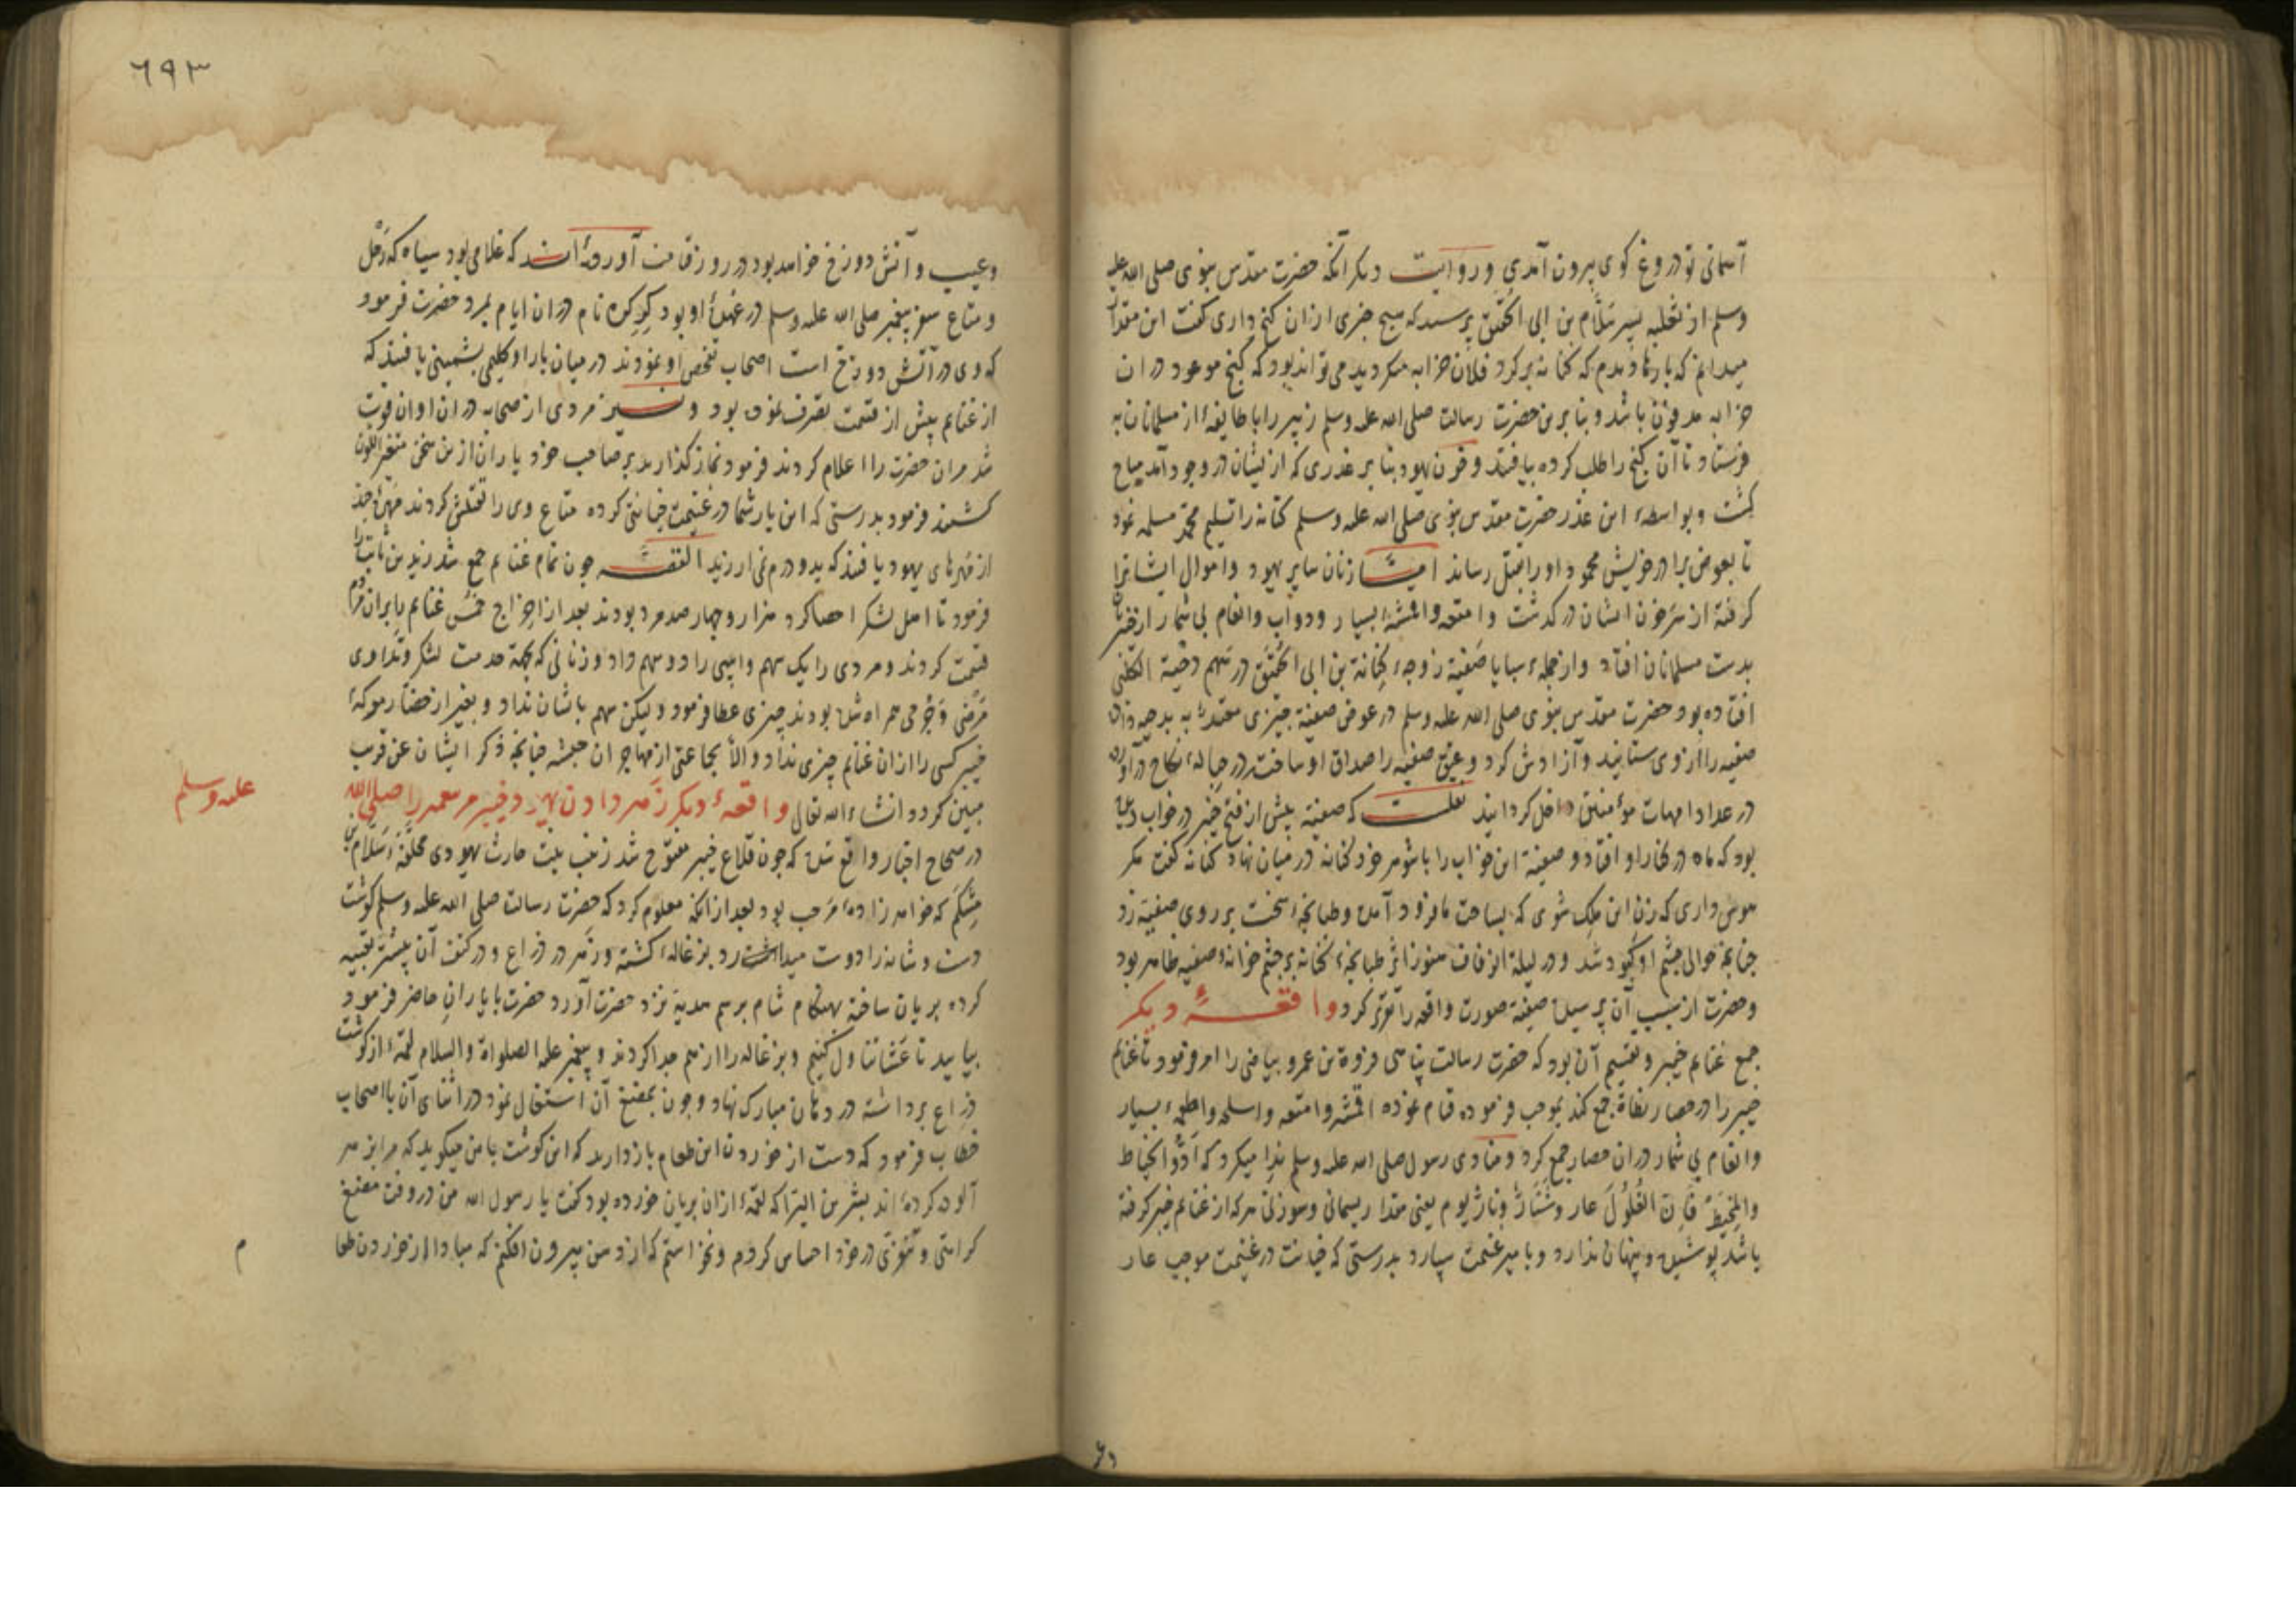 آسمانی تو دروغ کوی بیرون آمدی و روایت دیکر آنکه حضرت مقدس نبوی صلی الله علیه
وسلم از ثعلبه پسر سلام بن ابی الحقیق پرسید که هیچ خبری ازان کنج داری کفت این مقدار
میدانم که بارها دیدم که کنانه بر کرد فلان خرابه میکردید می تواند بود که کنج موعود دران
خرابه مدفون باشد و بنا برین حضرت رسالت صلی الله علیه وسلم زبیر را با طایفهٔ از مسلمانان به
فرستاد تا آن کنج را طلب کرده بیافتند و خون یهود بنا بر غدری که از یشان در وجود آمد مباح
کشت و بواسطهٔ این غدر حضرت مقدس نبوی صلی الله علیه وسلم کنانه را تسلیم محمد مسلمه نمود
تا بعوض برادر خویش محمود او را بقتل رساند زنان سایر یهود و اموال ایشانرا
کرفته از سر خون ایشان در کذشت و امتعه و اقمشهٔ بسیار و دواب و انعام بی شمار از خیبر
بدست مسلمانان افتاد و از جملهٔ سبایا صفیة زوجهٔ کنانة بن ابی الحقیق در سهم دحیة الکلبی
افتاده بود حضرت مقدس نبوی صلی الله علیه وسلم در عوض صفیة چیزی به بدحیه داده
صفیه را از وی ستانید و آزادش کرد و عتق صفیه را صداق او ساخت در حبالهٔ نکاح درآورد
در عداد امهات مؤمنین داخل کردانید نقلست که صفیة پیش از فتح خیبر در خواب دیده
بود که ماه در کنار او افتاد و صفیة این خواب را با شوهر خود کنانه در میان نهاد کنانه کفت مکر
هوس داری که زن این ملک شوی که بساحت ما فرود آمده و طبانچهٔ سخت بر روی صفیه زد
چنانچه حوالی چشم او کبود شد و در لیلة الزفاف هنوز اثر طبانچهٔ کنانه بر چشم صفیه ظاهر بود
و حضرت از سبب آن پرسید صفیة صورت واقعه را تقریر کرد واقعهٔ دیکر
جمع غنایم خیبر و تقسیم آن بود که حضرت رسالت پناهی فروة بن عمرو بیاضی را امر فرمود تا غنایم
خیبر را در حصار نطاة جمع کند بموجب فرموده قیام نموده اقمشه و امتعه و اسلحه و اطعمهٔ بسیار
و انعام بی شمار دران حصار جمع کرد و منادی رسول صلی الله علیه وسلم ندا میکرد که ادّوا الخیاط
والمخیط فان الغلول عار وشنار ونار یوم یعنی مقدار ریسمانی و سوزنی هرکه از غنایم خیبر کرفته
باشد پوشیده و پنهان ندارد و با میر غنیمت سپارد بدرستی که خیانت در غنیمت موجب عار
وع
٦٩٣
وعیب و آتش دوزخ خواهد بود در روز قیامت آورده اند که غلامی بود سیاه که رحل
و متاع سفر پیغمبر صلی الله علیه وسلم در عهدهٔ او بود کرکره نام دران ایام بمرد حضرت فرمود
که وی در آتش دوزخ است اصحاب تفحص او نمودند در میان بار او کلیمی پشمینی یافتند که
از غنایم پیش از قسمت تصرف نموده بود و نیز مردی از صحابه دران اوان فوت
شد مران حضرت را اعلام کردند فرمود نماز کذارید بر صاحب خود یاران ازین سخن متغیر اللون
کشتند فرمود بدرستی که این یار شما در غنیمت خیانتی کرده متاع وی را تفتیش کردند مهرهٔ چند
از مهرهای یهود یافتند که بدو درم نمی ارزید القصه چون تمام غنایم جمع شد زید بن ثابت را
فرمود تا اهل لشکر احصا کرد هزار و چهارصد مرد بودند بعد از اخراج خمس غنایم را بران مردم
قسمت کردند و مردی را یک سهم و اسپی را دو سهم داد و زنانی که بجهة خدمت لشکر و تداوی
مرضی و جرحی همراه شده بودند چیزی عطا فرمود ولیکن سهم باشان نداد و بغیر از حضار معرکهٔ
خیبر کسی را ازان غنایم چیزی نداد و الا بجماعتی از مهاجران حبشه چنانچه ذکر ایشان عن قریب
مبین کردد انشاء الله تعالی واقعهٔ دیکر زهر دادن یهود خیبر مر پیغمبر را صلی الله
علیه وسلم
در صحاح اخبار واقع شده که چون قلاع خیبر مفتوح شد زینب بنت حارث یهودی سلام بن
مشکم که خواهر زادهٔ مرحب بود بعد ازانکه معلوم کرد که حضرت رسالت صلی الله علیه وسلم کوشت
دست و شانه را دوست میداشت بزغالهٔ کشته و زهر در ذراع و در کتف آن بیشتر تعبیه
کرده بریان ساخته بهنکام شام برسم هدیة نزد حضرت آورد حضرت با یاران حاضر فرمود
بیایید تا عشا تناول کنیم و بزغاله را از هم جدا کردند و پیغمبر علیه الصلواة والسلام لقمهٔ از کوشت
ذراع برداشته در دهان مبارک نهاد و چون بمضغ آن اشتغال نمود در اثنای آن با اصحاب
خطاب فرمود که دست از خوردن این طعام بازدارید که این کوشت با من میکوید که مرا بزهر
آلوده کرده اند بشر بن البرا که لقمهٔ ازان بریان خورده بود کفت یا رسول الله من در وقت مضغ
کراهتی و تنفری در خود احساس کردم و نخواستم که از دهن بیرون افکنم که مبادا از خوردن طعا
م